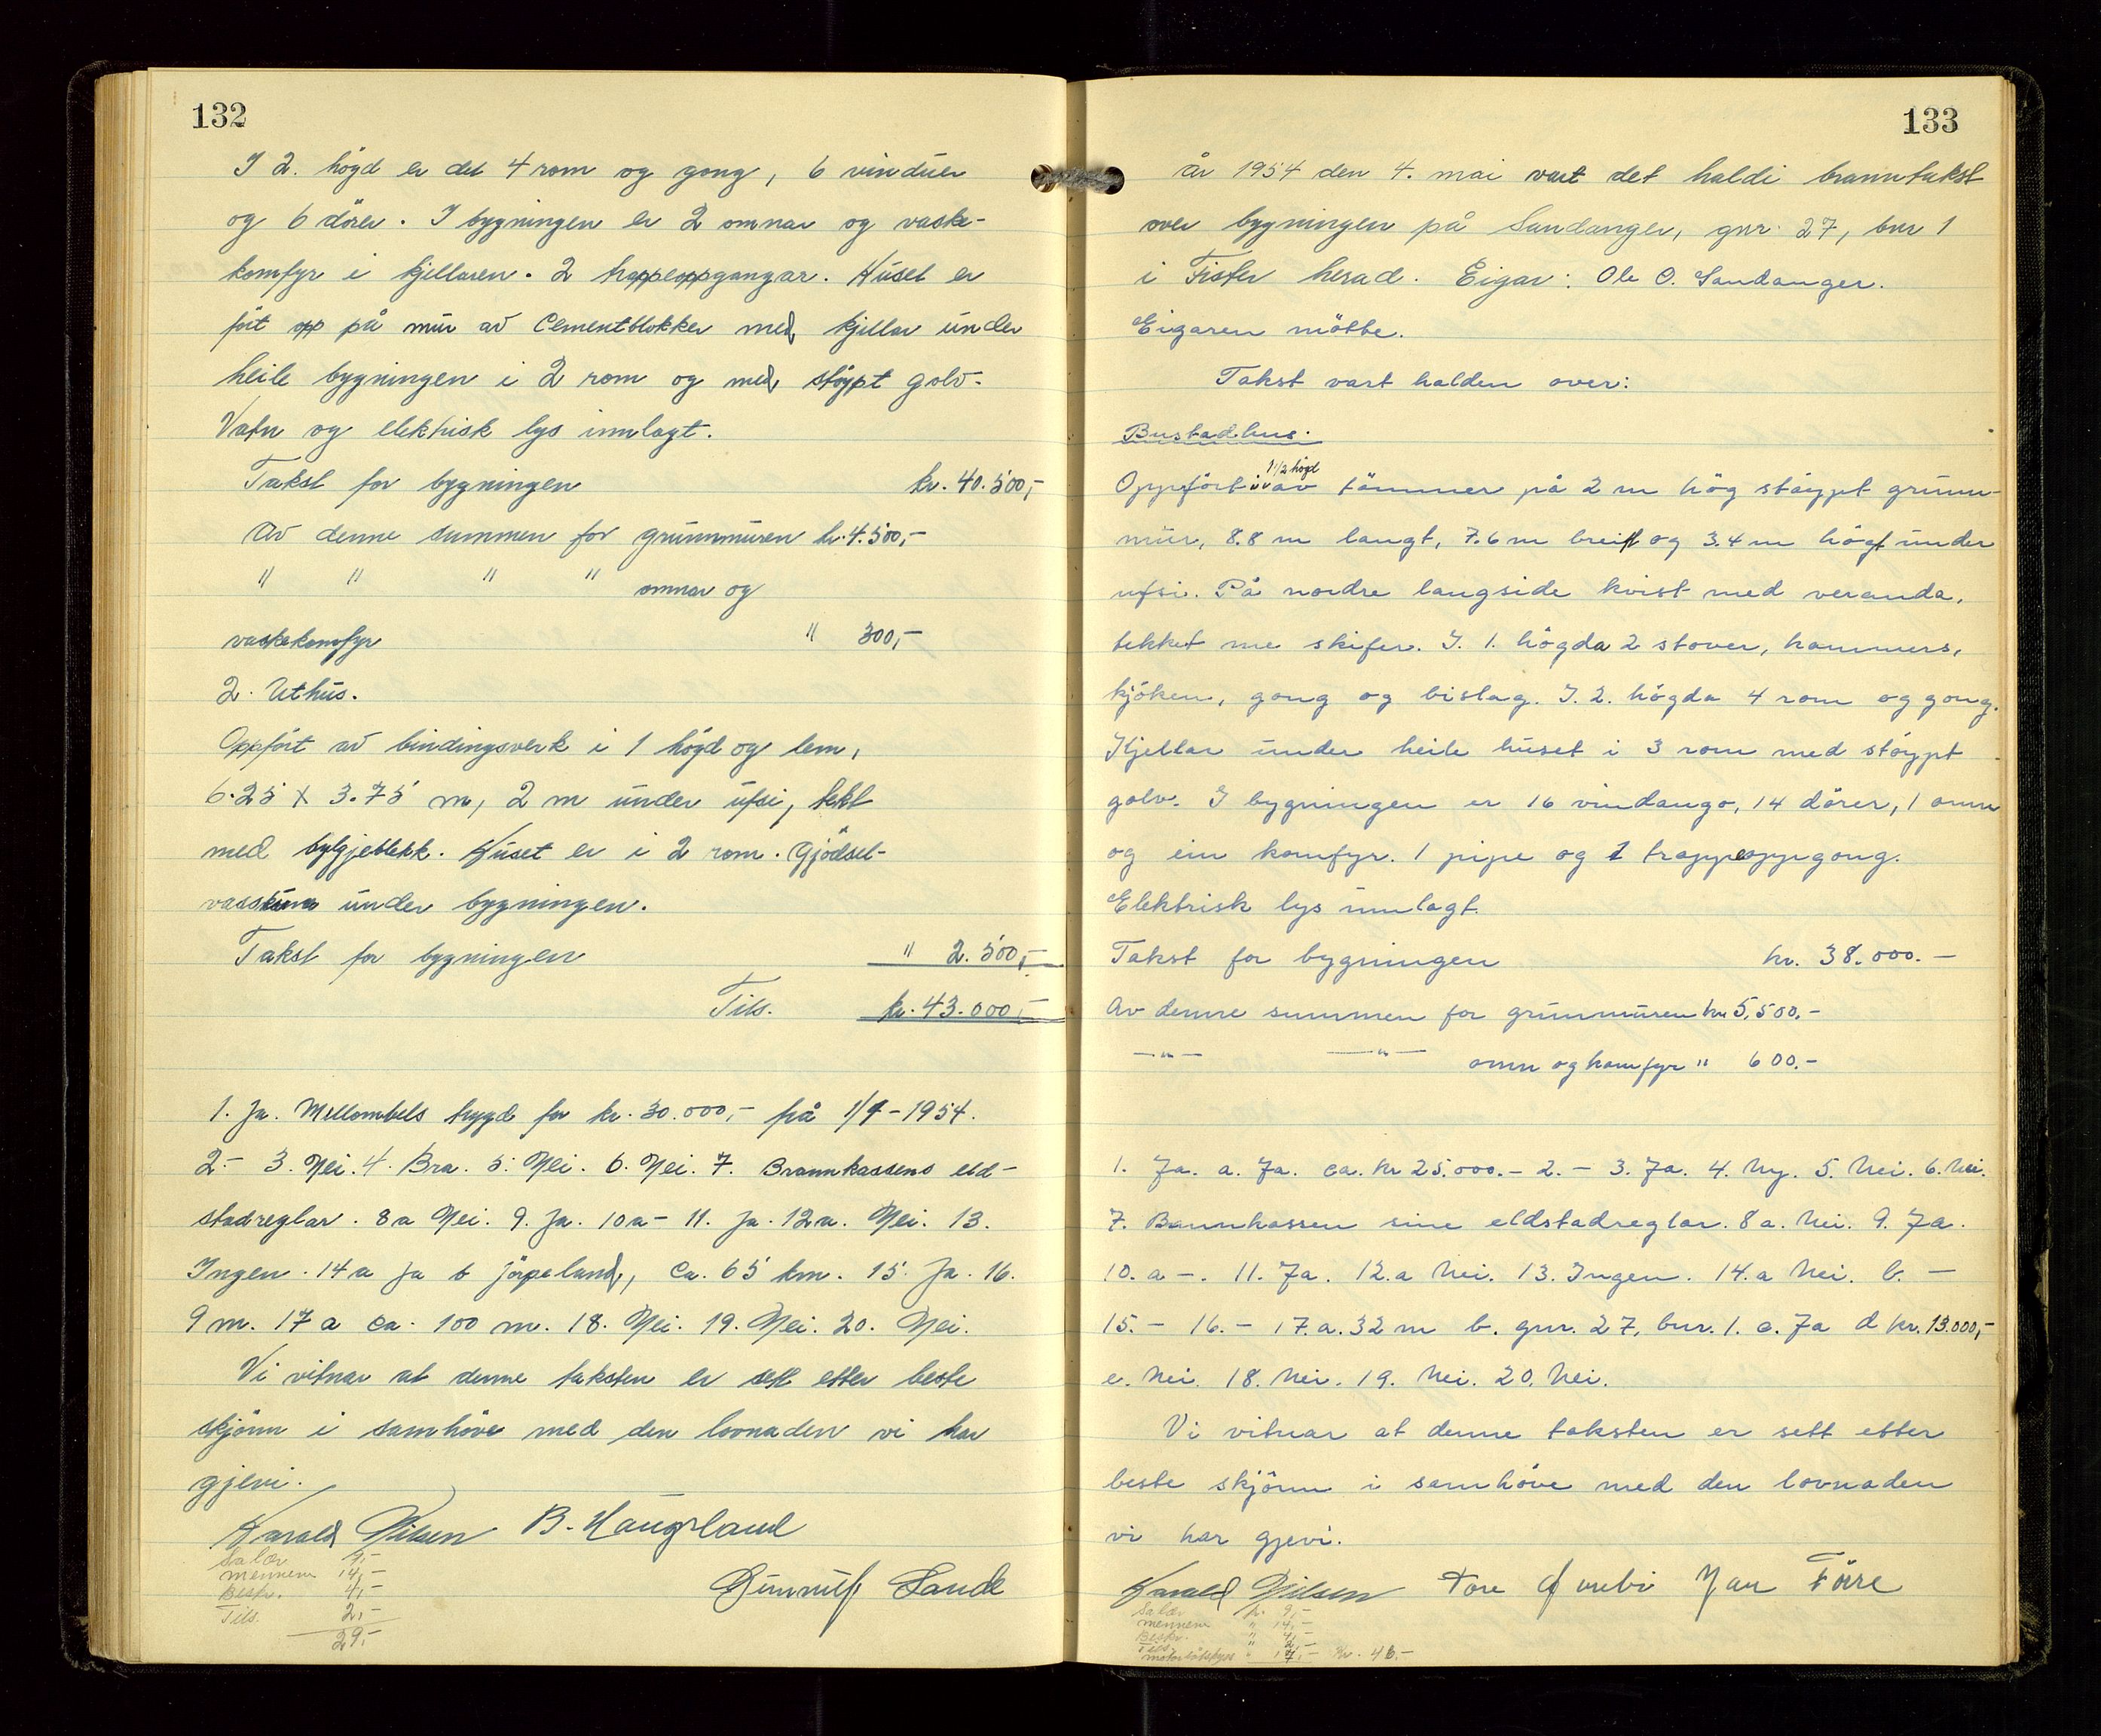 132
I 2. högd er det 4 rom og gong, 6 vinduer
og 6 dörer. I bygningen er 2 omnar og vaske-
komfyr i kjellaren. 2 trappeoppgangar. Huset er
fört opp på mur av Cementblokker med kjellar under
heile bygningen i 2 rom og med stöypt golv.
Vatn og elektrisk lys innlagt.
Takst for bygningen kr. 40.500,-
Av denne summen for grunnmuren kr. 4.500,-
" " " " omnar og
vaskekomfyr " 300,-
2. Uthus.
Oppfört av bindingsverk i 1 högd og lem,
6.25 x 3.75 m, 2 m under ufsi, tekt
med bylgjeblekk. Huset er i 2 rom. Gjödsel-
vasskum under bygningen.
Takst for bygningen " 2.500,-
Tils. kr. 43.000,-
1. Ja. Millombels trygd for kr. 30.000,- på 1/4-1954.
2.- 3. Nei. 4. Bra. 5. Nei. 6. Nei. 7. Brannkassens eld-
stadreglar. 8a Nei. 9. Ja. 10a- 11. Ja. 12a. Nei. 13.
Ingen. 14a Ja b Jörpeland, ca. 65 km. 15. Ja. 16.
9 m. 17 a ca. 100 m. 18. Nei. 19. Nei. 20. Nei.
Vi vitnar at denne taksten er sett etter beste
skjönn i samhöve med den lovnaden vi har
gjevi.
Harald Nilsen B. Haugsland
Gunnulf Lande
Salær 9,-
mennene 14,-
Beskr. 4,-
Tils. 2,-
29,-
133
År 1954 den 4. mai vart det haldi branntakst
over bygningen på Sandanger, gnr. 27, bnr 1
i Fister herad. Eigar: Ole O. Sandanger.
Eigaren mötte.
Takst vart halden over:
Bustadhus.
1 1/2 högd
Oppfört i av tömmer på 2 m hög stöypt grunn-
mur, 8.8 m langt, 7.6 m breitt og 3.4 m högt under
ufsi. På nordre langside kvist med veranda,
tekket me skifer. I. 1. högda 2 stover, kammers,
kjöken, gong og bislag. I. 2. högda 4 rom og gong.
Kjellar under heile huset i 3 rom med stöypt
golv. I bygningen er 16 vindaugo, 14 dörer, 1 omn
og ein komfyr. 1 pipe og 1 trappeoppgong.
Elektrisk lys innlagt.
Takst for bygningen kr. 38.000.-
Av denne summen for grunnmuren kr 5.500.-
-"- -"- omn og komfyr " 600.-
1. Ja. a. Ja. ca. kr 25.000.- 2. - 3. Ja. 4. Ny. 5. Nei. 6. Nei.
7. Bannkassen sine eldstadreglar. 8 a. Nei. 9. Ja.
10. a -. 11. Ja. 12.a Nei. 13. Ingen. 14.a Nei. b. -
15. - 16. - 17.a. 32 m b. gnr. 27, bnr. 1. c. Ja d kr. 13.000,-
e. Nei. 18. Nei. 19. Nei. 20. Nei.
Vi vitnar at denne taksten er sett etter
beste skjönn i samhöve med den lovnaden
vi har gjevi.
Harald Nilsen Tore Jan Före
Salær kr. 9,-
mennene " 14,-
Beskr. " 4,-
Tils. " 2,-
motorbåtskyss " 17,- kr. 46.-